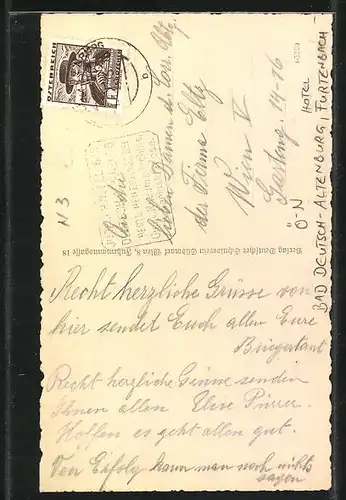 ÖSTERREICH
N 3
An die
lieben Damen d. Corr. Abtg.
der Firma Eltz
Wien V
14-16
63359
HOTEL
Ö-N
BAD DEUTSCH-ALTENBURG, FURTENBACH-
Verlag Deutscher Schulverein Südmark Wien 8, Fuhrmannsgasse 18
Recht herzliche Grüsse von
hier sendet Euch allen Eure
Recht herzliche Grüsse senden
Ihnen allen Ihre
Hoffen es geht allen gut.
Von Erfolg kann man noch nichts
sagen